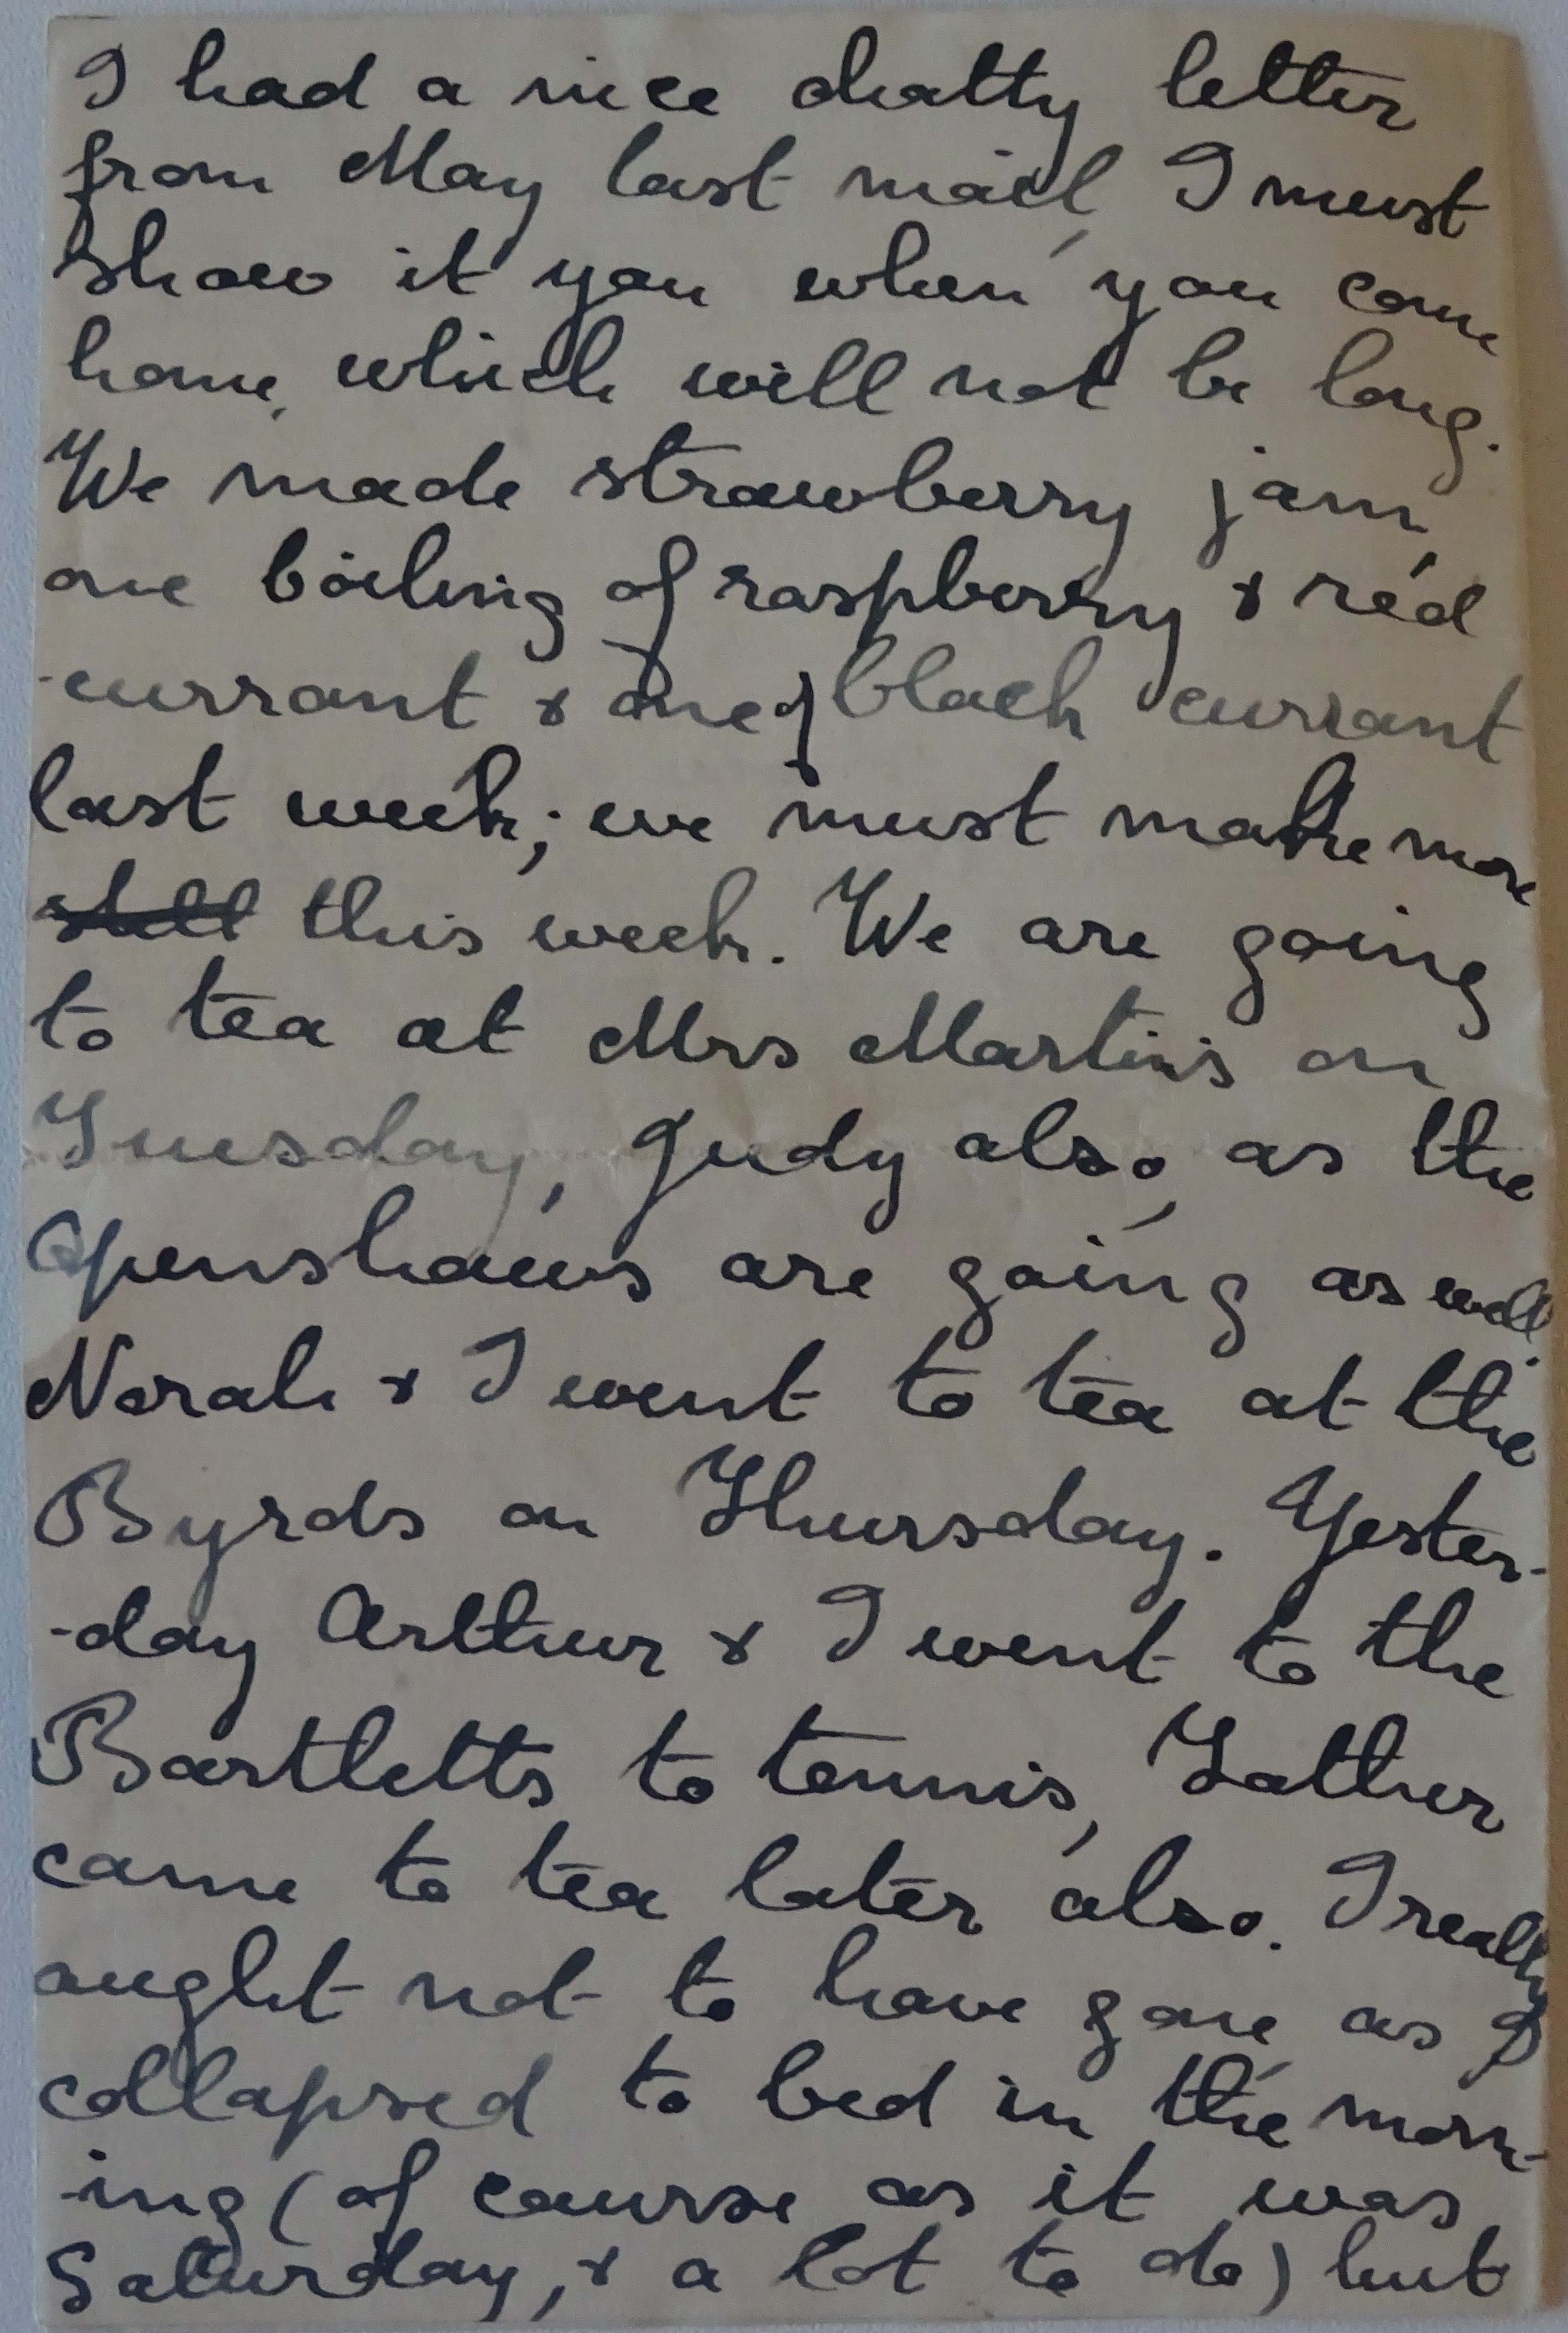 I had a nice chatty letter
from May last mail, I must
show it you when you come
home, which will not be long.
We made strawberry jam,
one boiling of raspberry & red
-currant & one of black currant
last week; we must make more
still this week. We are going
to tea at Mrs Martin's on
Tuesday, Judy also, as the
Openshaws are going as well.
Norah & I went to tea at the
Byrds on Thursday. Yester-
-day Arthur & I went to the
Bartletts to tennis, Father
came to tea later also. I really
ought not to have gone, as I
collapsed to bed in the morn-
-ing (of course as it was
Saturday, & a lot to do) but